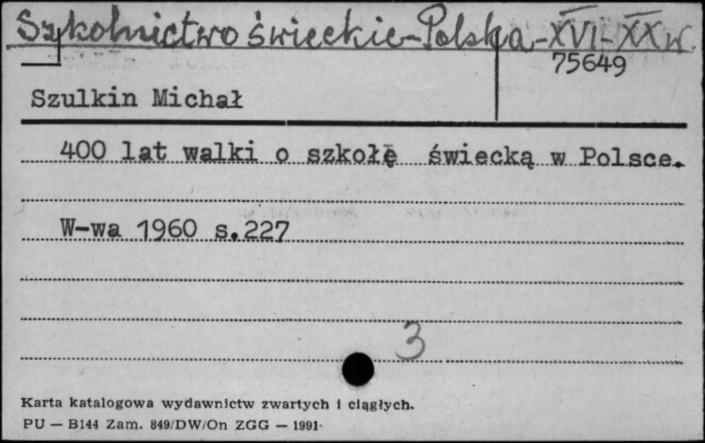 Szkolnictwo świeckie-Polska-XVI-XX w.
75649
Szulkin Michał
400 lat walki o szkołę świecką w Polsce.
W-wa 1960 s.227
3
Karta katalogowa wydawnictw zwartych i ciągłych.
PU — B144 Zam. 849/DW/On ZGG — 1991·